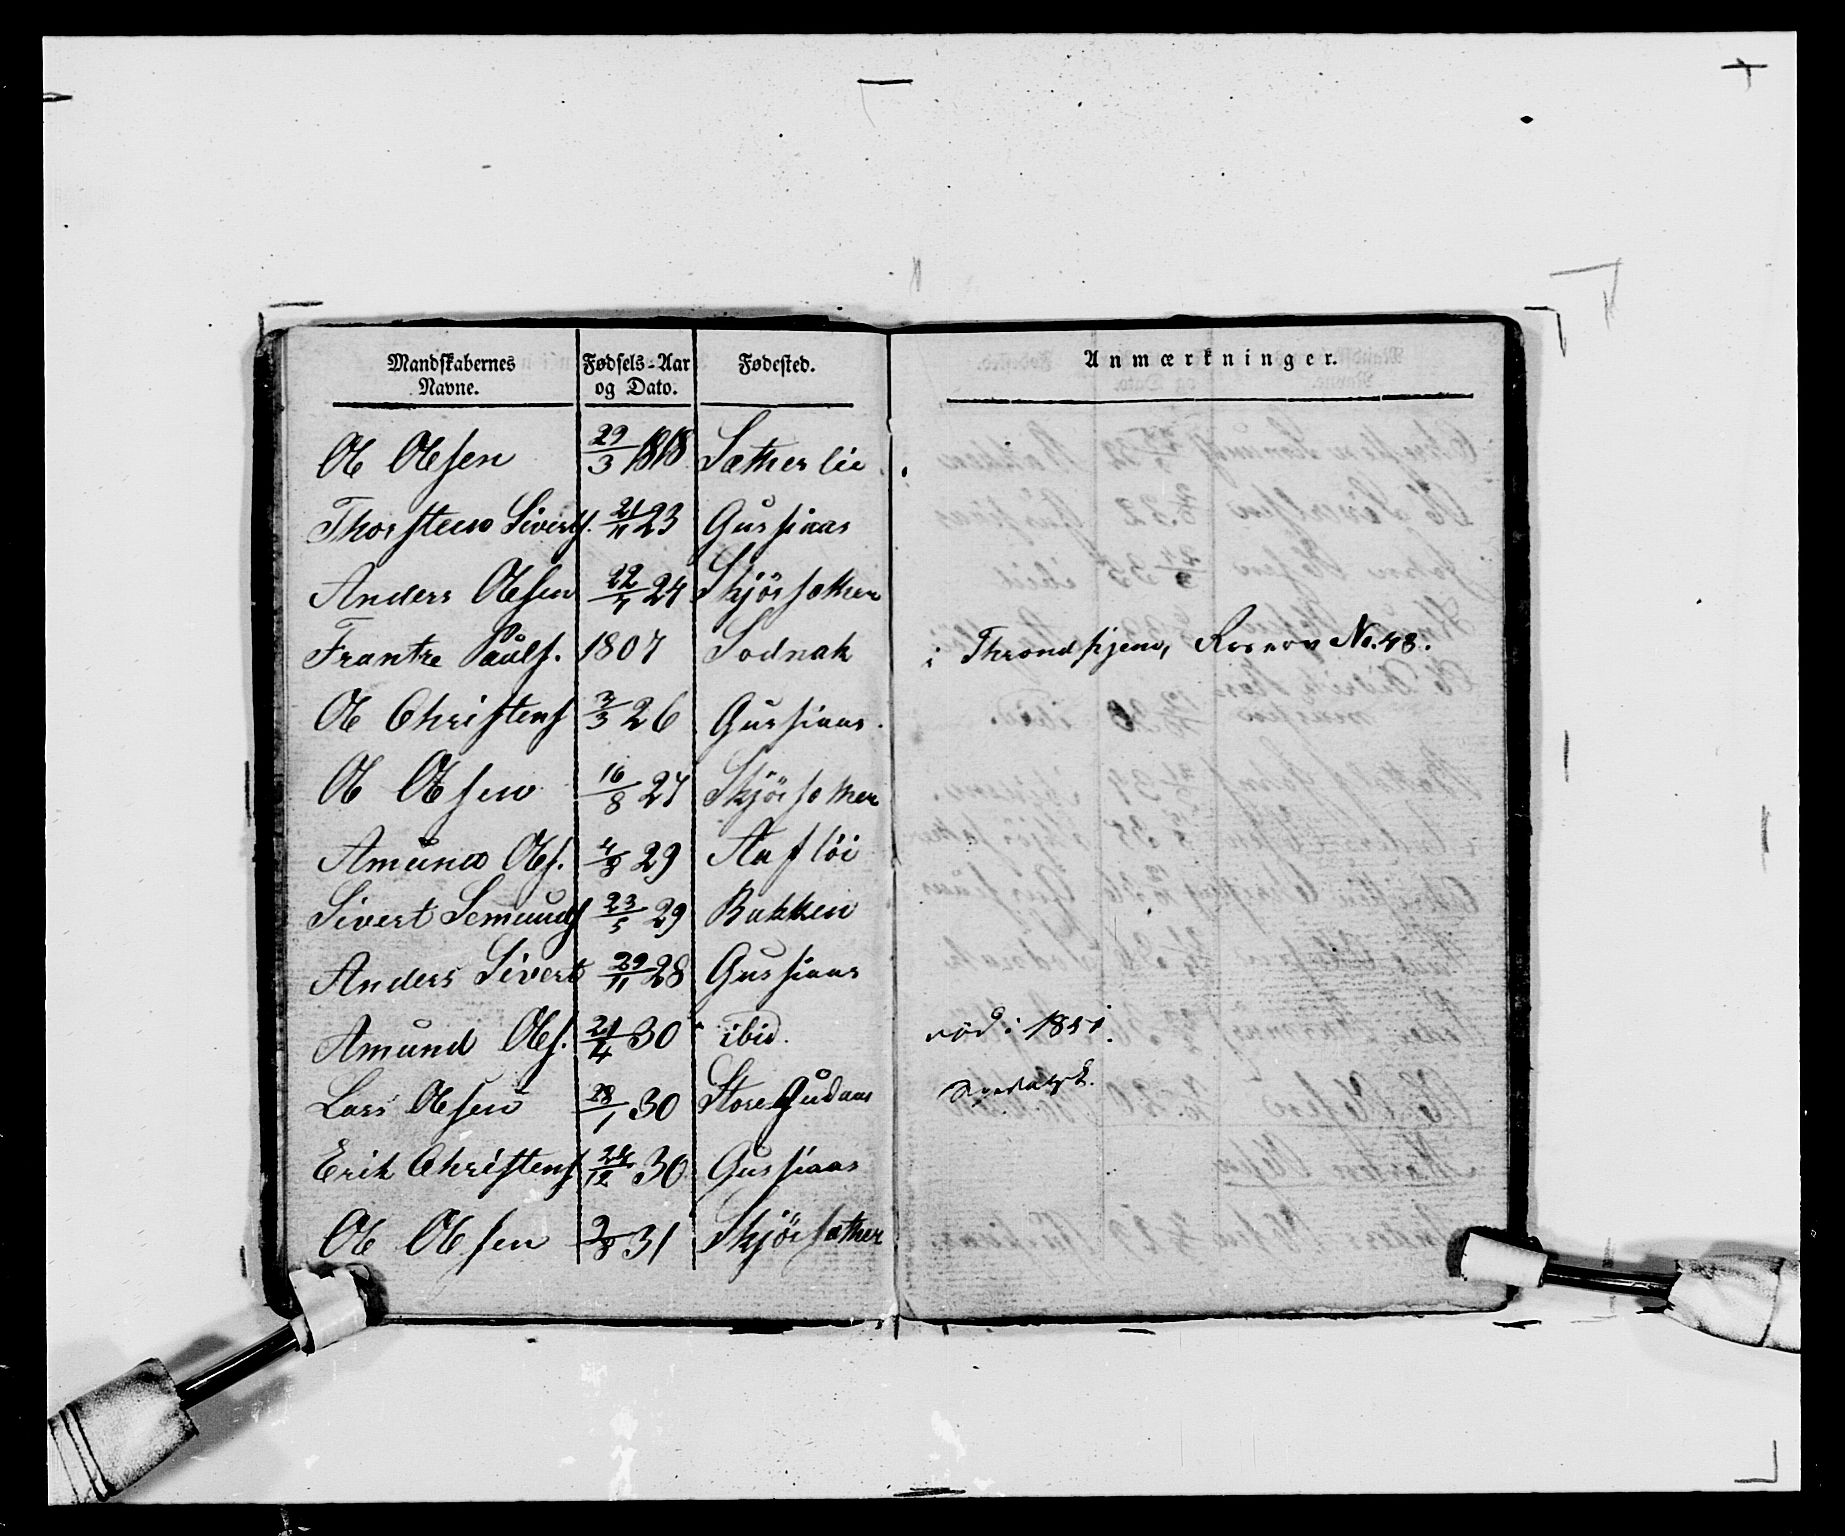 Mandskabernes Navne. Fødsels-Aar og Dato. Fødested. Anmærkninger.
Ol Olsen 29/3 1818 Sætherlie
Thorsten Siverts. 21/11 23 Gussiaas
Anders Olsen 22/5 24 Skjörsæther
Frantze Paúls. 1807 Sodnak i Throndhjem, No. 48.
Ol Christens 3/3 26 Gussiaas.
Ol Olsen 16/8 27 Skjörsæther
Amúnd Ols. 4/8 29 Aaflöi
Sivert Semunds 23/5 29 Bakken
Anders Sivert 29/11 28 Gussiaas
Amúnd Ols. 21/4 30 ibid. död i 1851.
Lars Olsen 28/1 30 Store Gudaas
Erik Christens 24/12 30 Gussiaas
Ol Olsen 9/8 31 Skjörsæther